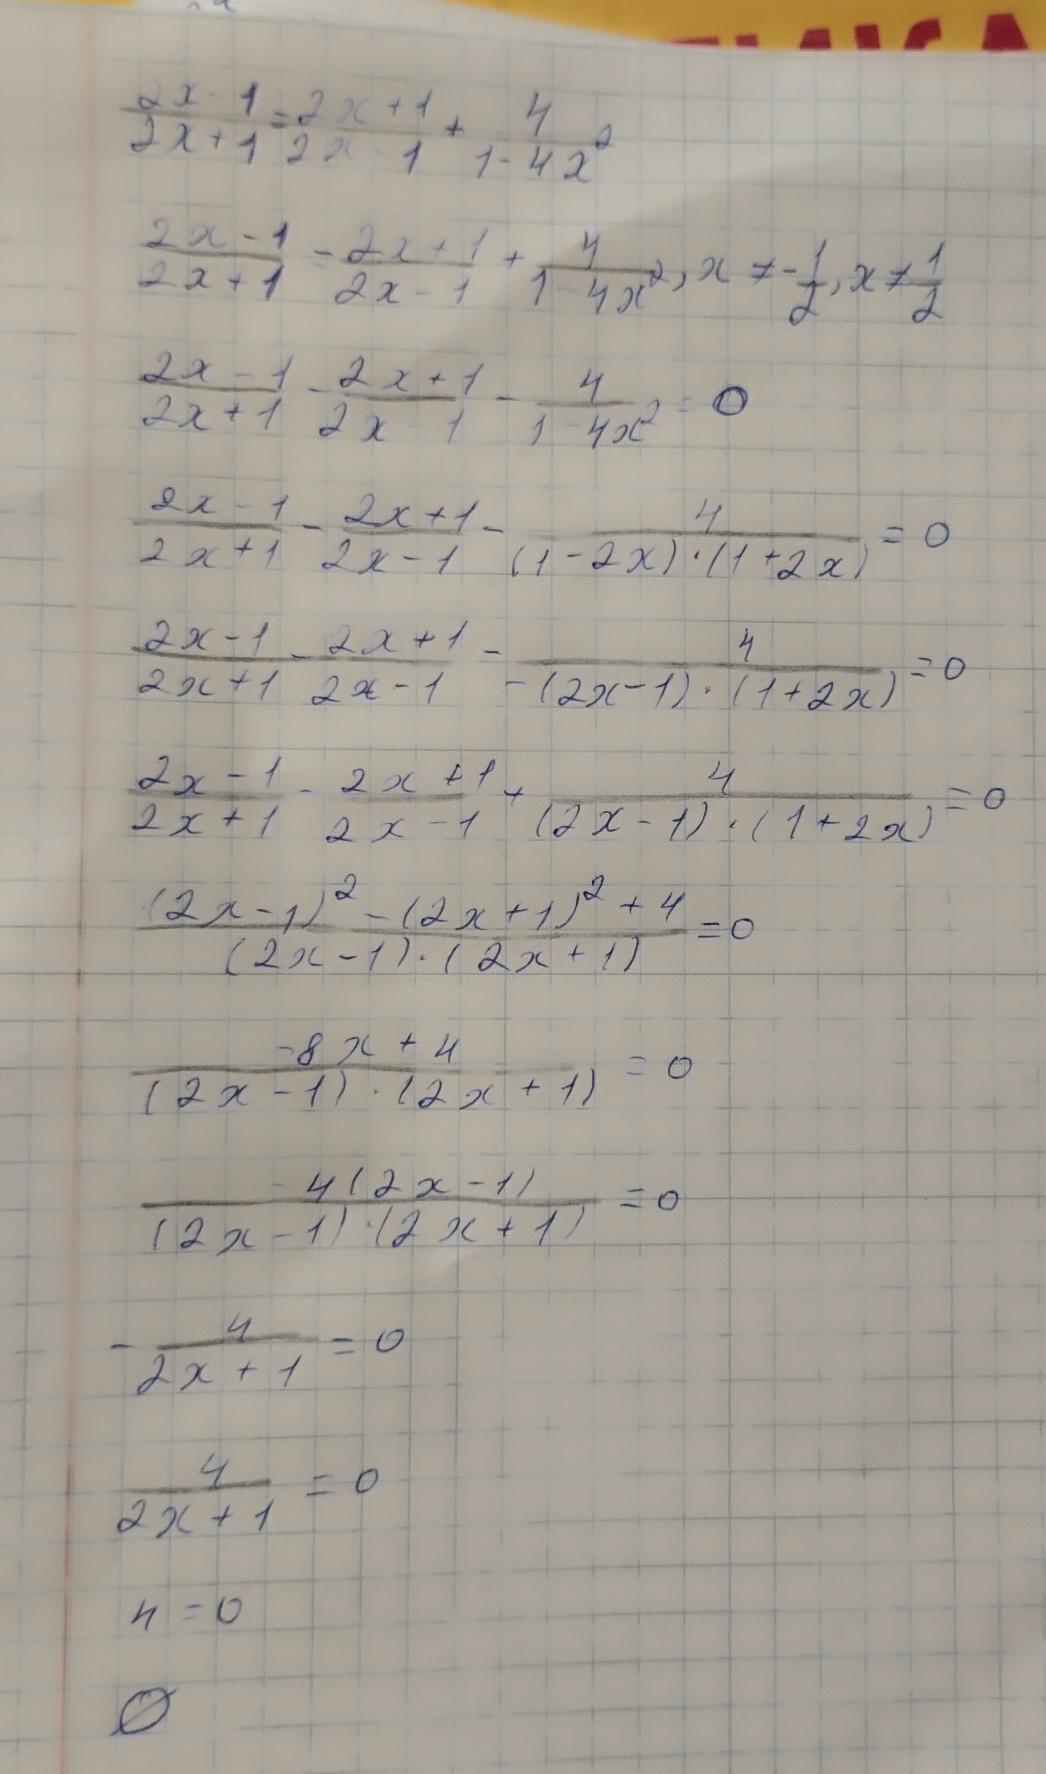 (2x-1)/(2x+1) = (2x+1)/(2x-1) + 4/(1-4x²)
(2x-1)/(2x+1) = (2x+1)/(2x-1) + 4/(1-4x²), x ≠ -1/2, x ≠ 1/2
(2x-1)/(2x+1) - (2x+1)/(2x-1) - 4/(1-4x²) = 0
(2x-1)/(2x+1) - (2x+1)/(2x-1) - 4/((1-2x)·(1+2x)) = 0
(2x-1)/(2x+1) - (2x+1)/(2x-1) - 4/(-(2x-1)·(1+2x)) = 0
(2x-1)/(2x+1) - (2x+1)/(2x-1) + 4/((2x-1)·(1+2x)) = 0
((2x-1)² - (2x+1)² + 4)/((2x-1)·(2x+1)) = 0
(-8x+4)/((2x-1)·(2x+1)) = 0
(-4(2x-1))/((2x-1)·(2x+1)) = 0
- 4/(2x+1) = 0
4/(2x+1) = 0
4 = 0
∅